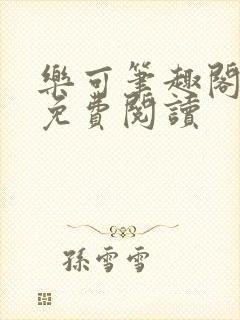 樂可筆趣閣
免費閱讀
孫雪雪